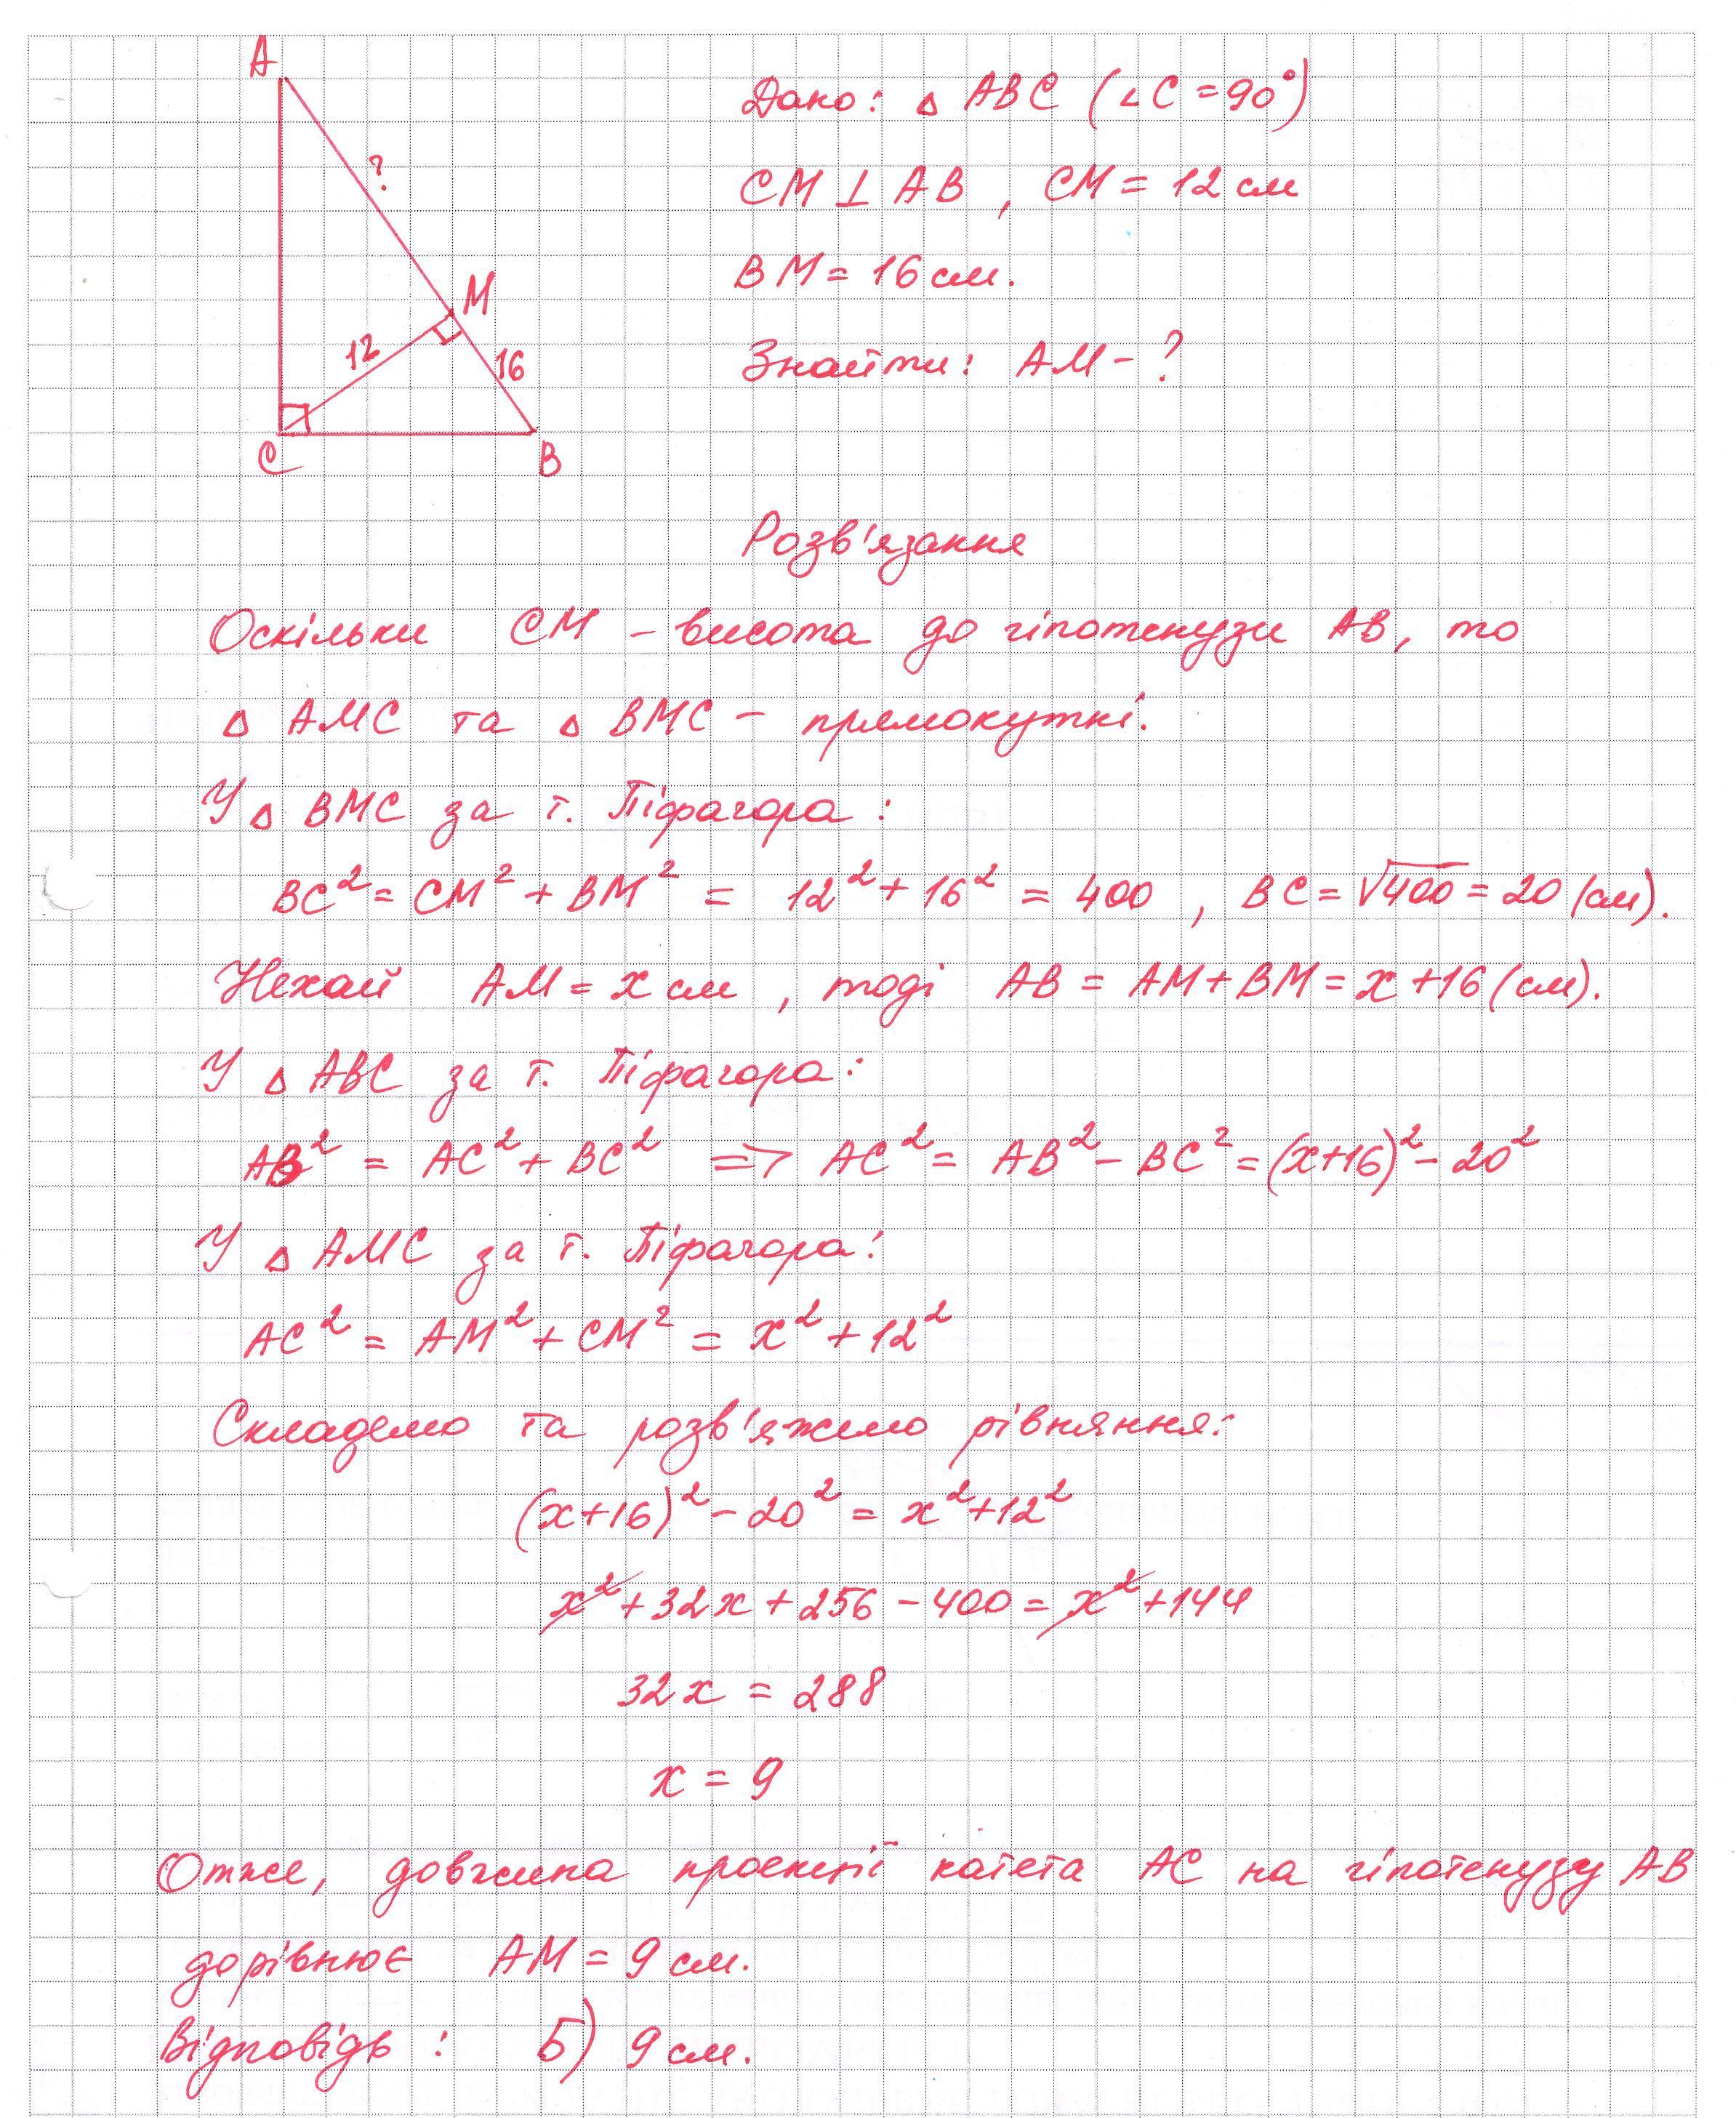 A
?
M
12
16
C
B
Дано: △ ABC (∠C = 90°)
CM ⊥ AB , CM = 12 см
BM = 16 см.
Знайти: AM - ?
Розв'язання
Оскільки CM - висота до гіпотенузи AB, то
△ AMC та △ BMC - прямокутні.
У △ BMC за т. Піфагора :
BC² = CM² + BM² = 12² + 16² = 400 , BC = √400 = 20 (см).
Нехай AM = x см , тоді AB = AM + BM = x + 16 (см).
У △ ABC за т. Піфагора:
AB² = AC² + BC² => AC² = AB² - BC² = (x+16)² - 20²
У △ AMC за т. Піфагора:
AC² = AM² + CM² = x² + 12²
Складемо та розв'яжемо рівняння:
(x+16)² - 20² = x² + 12²
x² + 32x + 256 - 400 = x² + 144
32x = 288
x = 9
Отже, довжина проекції катета AC на гіпотенузу AB
дорівнює AM = 9 см.
Відповідь : Б) 9 см.